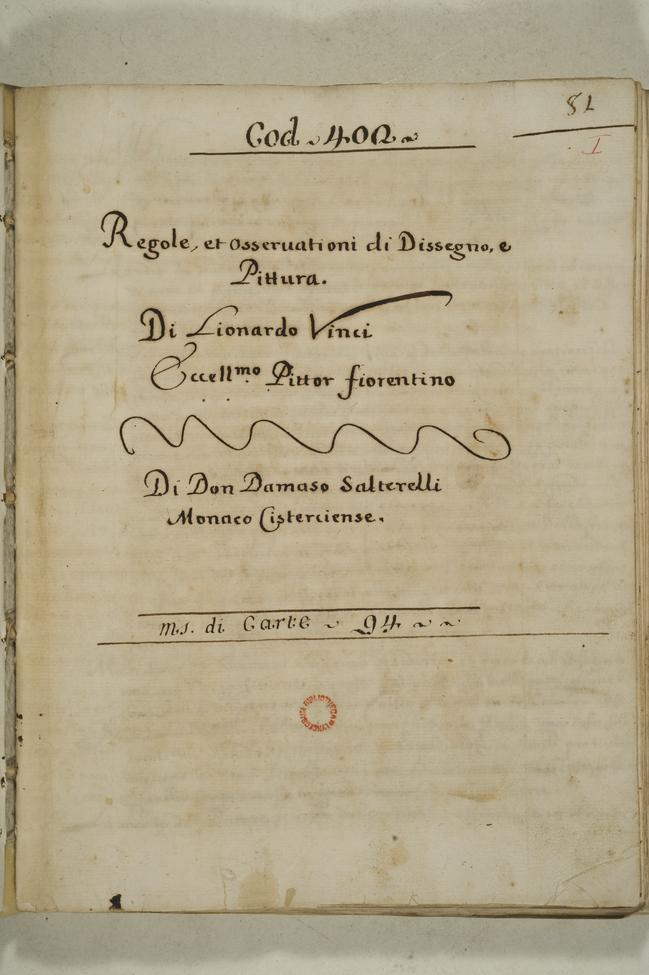 81
I
Cod ~ 402 ~
Regole, et osseruationi di Dissegno, e
Pittura.
Di Lionardo Vinci
Eccell.mo Pittor fiorentino
Di Don Damaso Salterelli
Monaco Cisterciense.
ms. di Carte ~ 94 ~ ~
BIBLIOTHECA